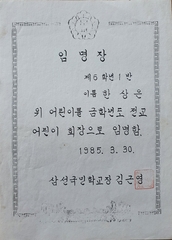 임 명 장
제 6 학년 1 반
이름 한 상 은
위 어린이를 금학년도 전교
어린이 회장으로 임명함.
1985. 3. 30.
삼선국민학교장 김근영